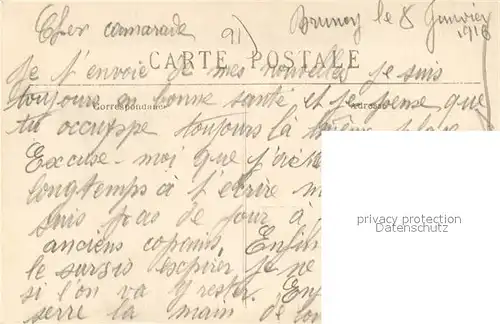 Brunoy le 8 Janvier
1918
Cher camarade
91
CARTE POSTALE
Je t'envoie de mes nouvelles je suis
Correspondance Adresse
toujours en bonne santé et je pense que
tu occuppe toujours là même place
Excuse-moi que j'
longtemps à t'écrire
suis pas de jour à
anciens copains. Enfin
le sursis expirer je ne
si l'on va y rester.
serre la main de
privacy protection
Datenschutz